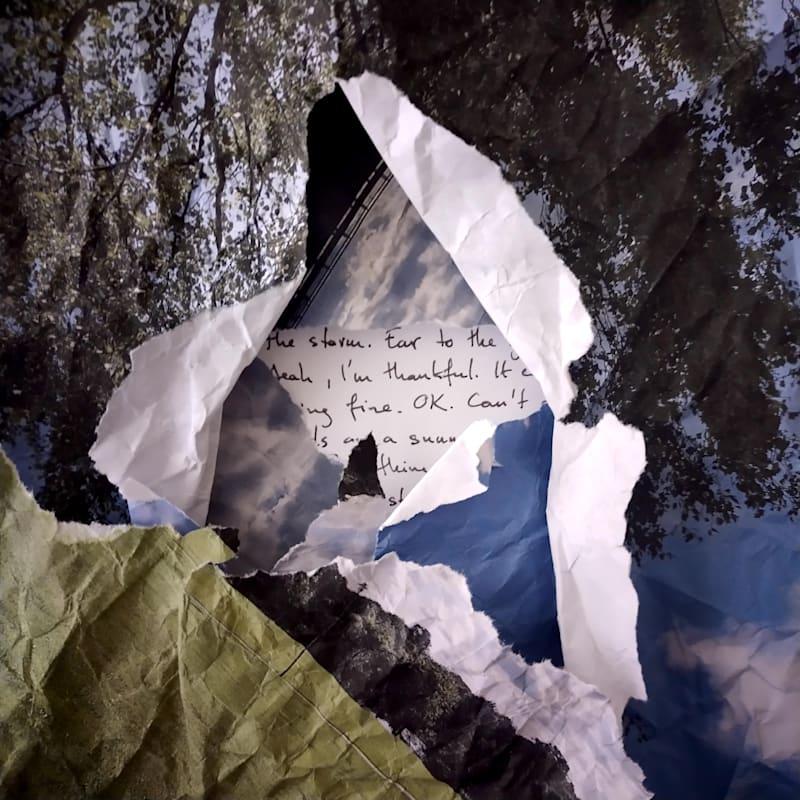 the storm. Ear to the
Yeah, I'm thankful. It
ing fine. OK. Can't
a sunn
thin
st